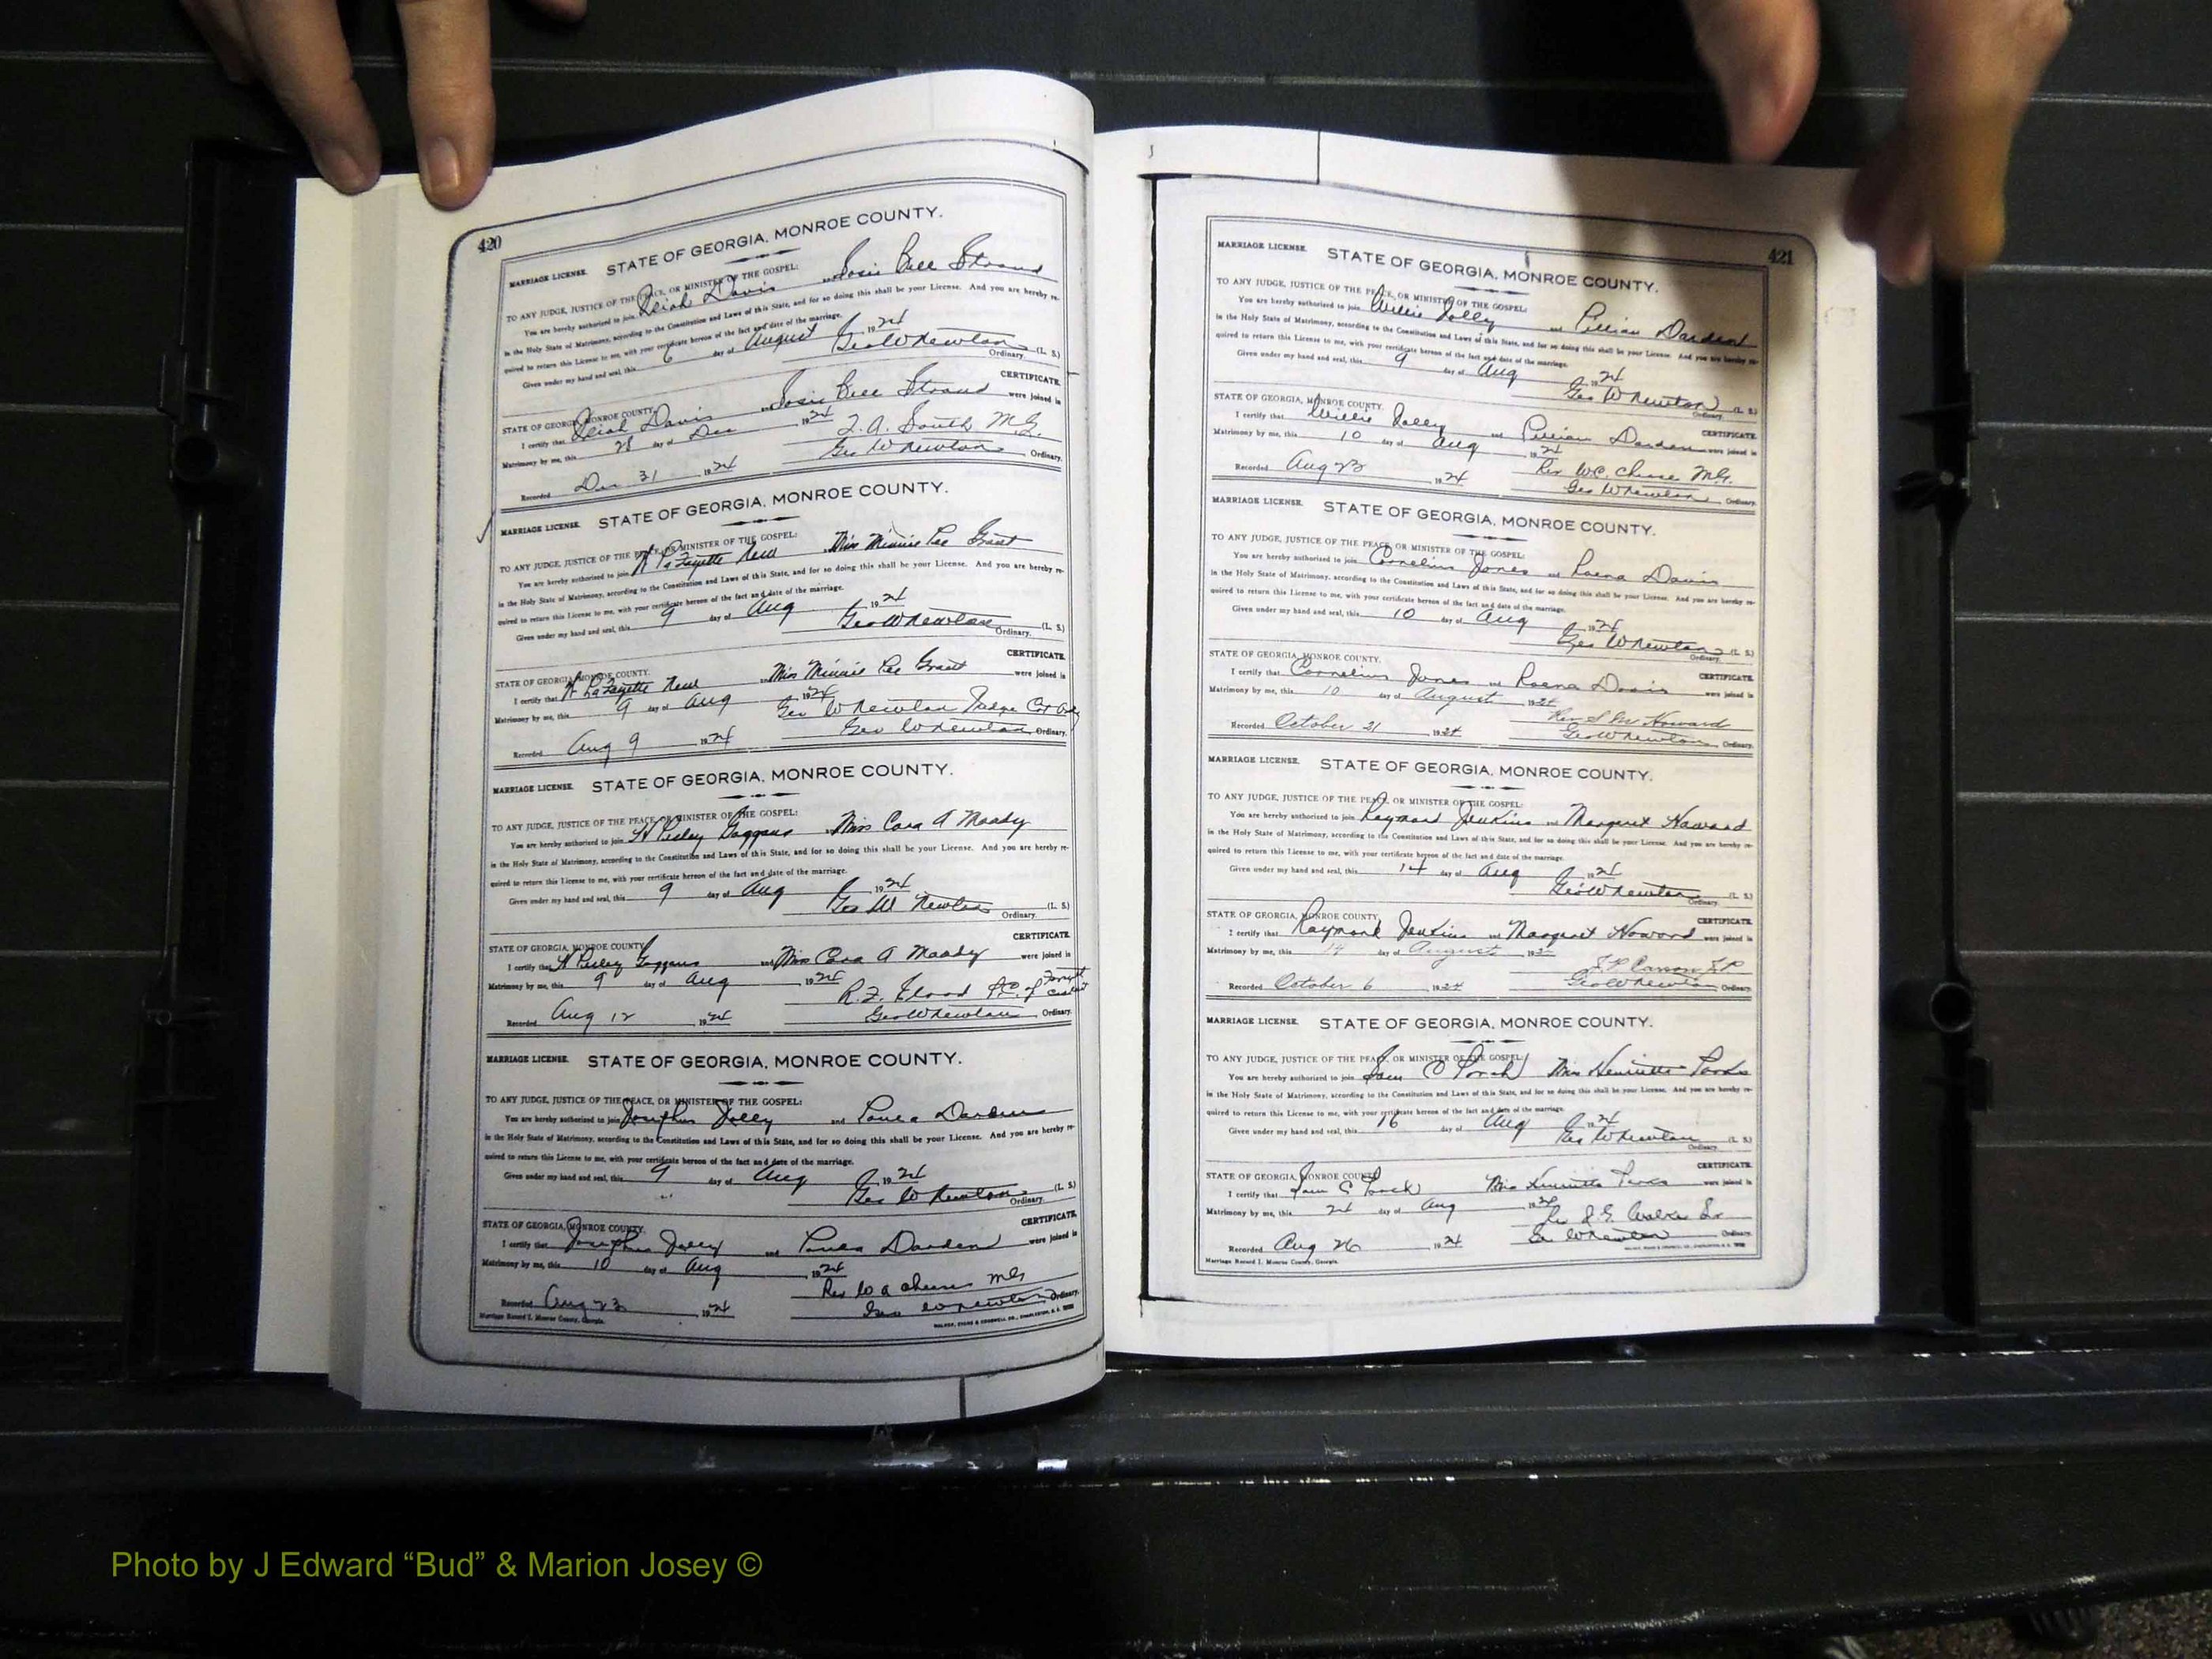 420
MARRIAGE LICENSE. STATE OF GEORGIA, MONROE COUNTY.
TO ANY JUDGE, JUSTICE OF THE PEACE, OR MINISTER OF THE GOSPEL:
You are hereby authorized to join Davis and Bell
in the Holy State of Matrimony, according to the Constitution and Laws of this State, and for so doing this shall be your License. And you are hereby re-
quired to return this License to me, with your certificate hereon of the fact and date of the marriage.
Given under my hand and seal, this 6 day of August 1924
Geo W Newton (L. S.)
Ordinary.
STATE OF GEORGIA, MONROE COUNTY. CERTIFICATE.
I certify that Davis and Bell were joined in
Matrimony by me, this 28 day of Dec 1924
South M.G.
Recorded Dec 31 1924 Geo W Newton Ordinary.
MARRIAGE LICENSE. STATE OF GEORGIA, MONROE COUNTY.
TO ANY JUDGE, JUSTICE OF THE PEACE, OR MINISTER OF THE GOSPEL:
You are hereby authorized to join LaFayette and Miss Minnie Grant
in the Holy State of Matrimony, according to the Constitution and Laws of this State, and for so doing this shall be your License. And you are hereby re-
quired to return this License to me, with your certificate hereon of the fact and date of the marriage.
Given under my hand and seal, this 9 day of Aug 1924
Geo W Newton (L. S.)
Ordinary.
STATE OF GEORGIA, MONROE COUNTY. CERTIFICATE.
I certify that LaFayette and Miss Minnie Grant were joined in
Matrimony by me, this 9 day of Aug 1924
Geo W Newton Judge
Recorded Aug 9 1924 Geo W Newton Ordinary.
MARRIAGE LICENSE. STATE OF GEORGIA, MONROE COUNTY.
TO ANY JUDGE, JUSTICE OF THE PEACE, OR MINISTER OF THE GOSPEL:
You are hereby authorized to join and Miss Cora A Moody
in the Holy State of Matrimony, according to the Constitution and Laws of this State, and for so doing this shall be your License. And you are hereby re-
quired to return this License to me, with your certificate hereon of the fact and date of the marriage.
Given under my hand and seal, this 9 day of Aug 1924
Geo W Newton (L. S.)
Ordinary.
STATE OF GEORGIA, MONROE COUNTY. CERTIFICATE.
I certify that and Miss Cora A Moody were joined in
Matrimony by me, this 9 day of Aug 1924
R.F. Flood of Forsyth
Recorded Aug 12 1924 Geo W Newton Ordinary.
MARRIAGE LICENSE. STATE OF GEORGIA, MONROE COUNTY.
TO ANY JUDGE, JUSTICE OF THE PEACE, OR MINISTER OF THE GOSPEL:
You are hereby authorized to join Josephus and Darden
in the Holy State of Matrimony, according to the Constitution and Laws of this State, and for so doing this shall be your License. And you are hereby re-
quired to return this License to me, with your certificate hereon of the fact and date of the marriage.
Given under my hand and seal, this 9 day of Aug 1924
Geo W Newton (L. S.)
Ordinary.
STATE OF GEORGIA, MONROE COUNTY. CERTIFICATE.
I certify that Josephus and Darden were joined in
Matrimony by me, this 10 day of Aug 1924
Rev MG
Recorded Aug 23 1924 Geo W Newton Ordinary.
Marriage Record I. Monroe County, Georgia. WALKER, EVANS & COGSWELL CO., CHARLESTON, S. C.
421
MARRIAGE LICENSE. STATE OF GEORGIA, MONROE COUNTY.
TO ANY JUDGE, JUSTICE OF THE PEACE, OR MINISTER OF THE GOSPEL:
You are hereby authorized to join Willie and Lillian Darden
in the Holy State of Matrimony, according to the Constitution and Laws of this State, and for so doing this shall be your License. And you are hereby re-
quired to return this License to me, with your certificate hereon of the fact and date of the marriage.
Given under my hand and seal, this 9 day of Aug 1924
Geo W Newton (L. S.)
Ordinary.
STATE OF GEORGIA, MONROE COUNTY. CERTIFICATE.
I certify that Willie and Lillian Darden were joined in
Matrimony by me, this 10 day of Aug 1924
Rev M.G.
Recorded Aug 23 1924 Geo W Newton Ordinary.
MARRIAGE LICENSE. STATE OF GEORGIA, MONROE COUNTY.
TO ANY JUDGE, JUSTICE OF THE PEACE, OR MINISTER OF THE GOSPEL:
You are hereby authorized to join Cornelius Jones and Davis
in the Holy State of Matrimony, according to the Constitution and Laws of this State, and for so doing this shall be your License. And you are hereby re-
quired to return this License to me, with your certificate hereon of the fact and date of the marriage.
Given under my hand and seal, this 10 day of Aug 1924
Geo W Newton (L. S.)
Ordinary.
STATE OF GEORGIA, MONROE COUNTY. CERTIFICATE.
I certify that Cornelius Jones and Davis were joined in
Matrimony by me, this 10 day of August 1924
Rev Howard
Recorded October 21 1924 Geo W Newton Ordinary.
MARRIAGE LICENSE. STATE OF GEORGIA, MONROE COUNTY.
TO ANY JUDGE, JUSTICE OF THE PEACE, OR MINISTER OF THE GOSPEL:
You are hereby authorized to join Raymond Jenkins and Margaret Howard
in the Holy State of Matrimony, according to the Constitution and Laws of this State, and for so doing this shall be your License. And you are hereby re-
quired to return this License to me, with your certificate hereon of the fact and date of the marriage.
Given under my hand and seal, this 14 day of Aug 1924
Geo W Newton (L. S.)
Ordinary.
STATE OF GEORGIA, MONROE COUNTY. CERTIFICATE.
I certify that Raymond Jenkins and Margaret Howard were joined in
Matrimony by me, this 14 day of August 192
Recorded October 6 1924 Geo W Newton Ordinary.
MARRIAGE LICENSE. STATE OF GEORGIA, MONROE COUNTY.
TO ANY JUDGE, JUSTICE OF THE PEACE, OR MINISTER OF THE GOSPEL:
You are hereby authorized to join Sam Miss Henrietta Parks
in the Holy State of Matrimony, according to the Constitution and Laws of this State, and for so doing this shall be your License. And you are hereby re-
quired to return this License to me, with your certificate hereon of the fact and date of the marriage.
Given under my hand and seal, this 16 day of Aug 1924
Geo W Newton (L. S.)
Ordinary.
STATE OF GEORGIA, MONROE COUNTY. CERTIFICATE.
I certify that Sam Miss Henrietta Parks were joined in
Matrimony by me, this 24 day of Aug 1924
Walker Sr
Recorded Aug 26 1924 Geo W Newton Ordinary.
Marriage Record I. Monroe County, Georgia.
Photo by J Edward “Bud” & Marion Josey ©